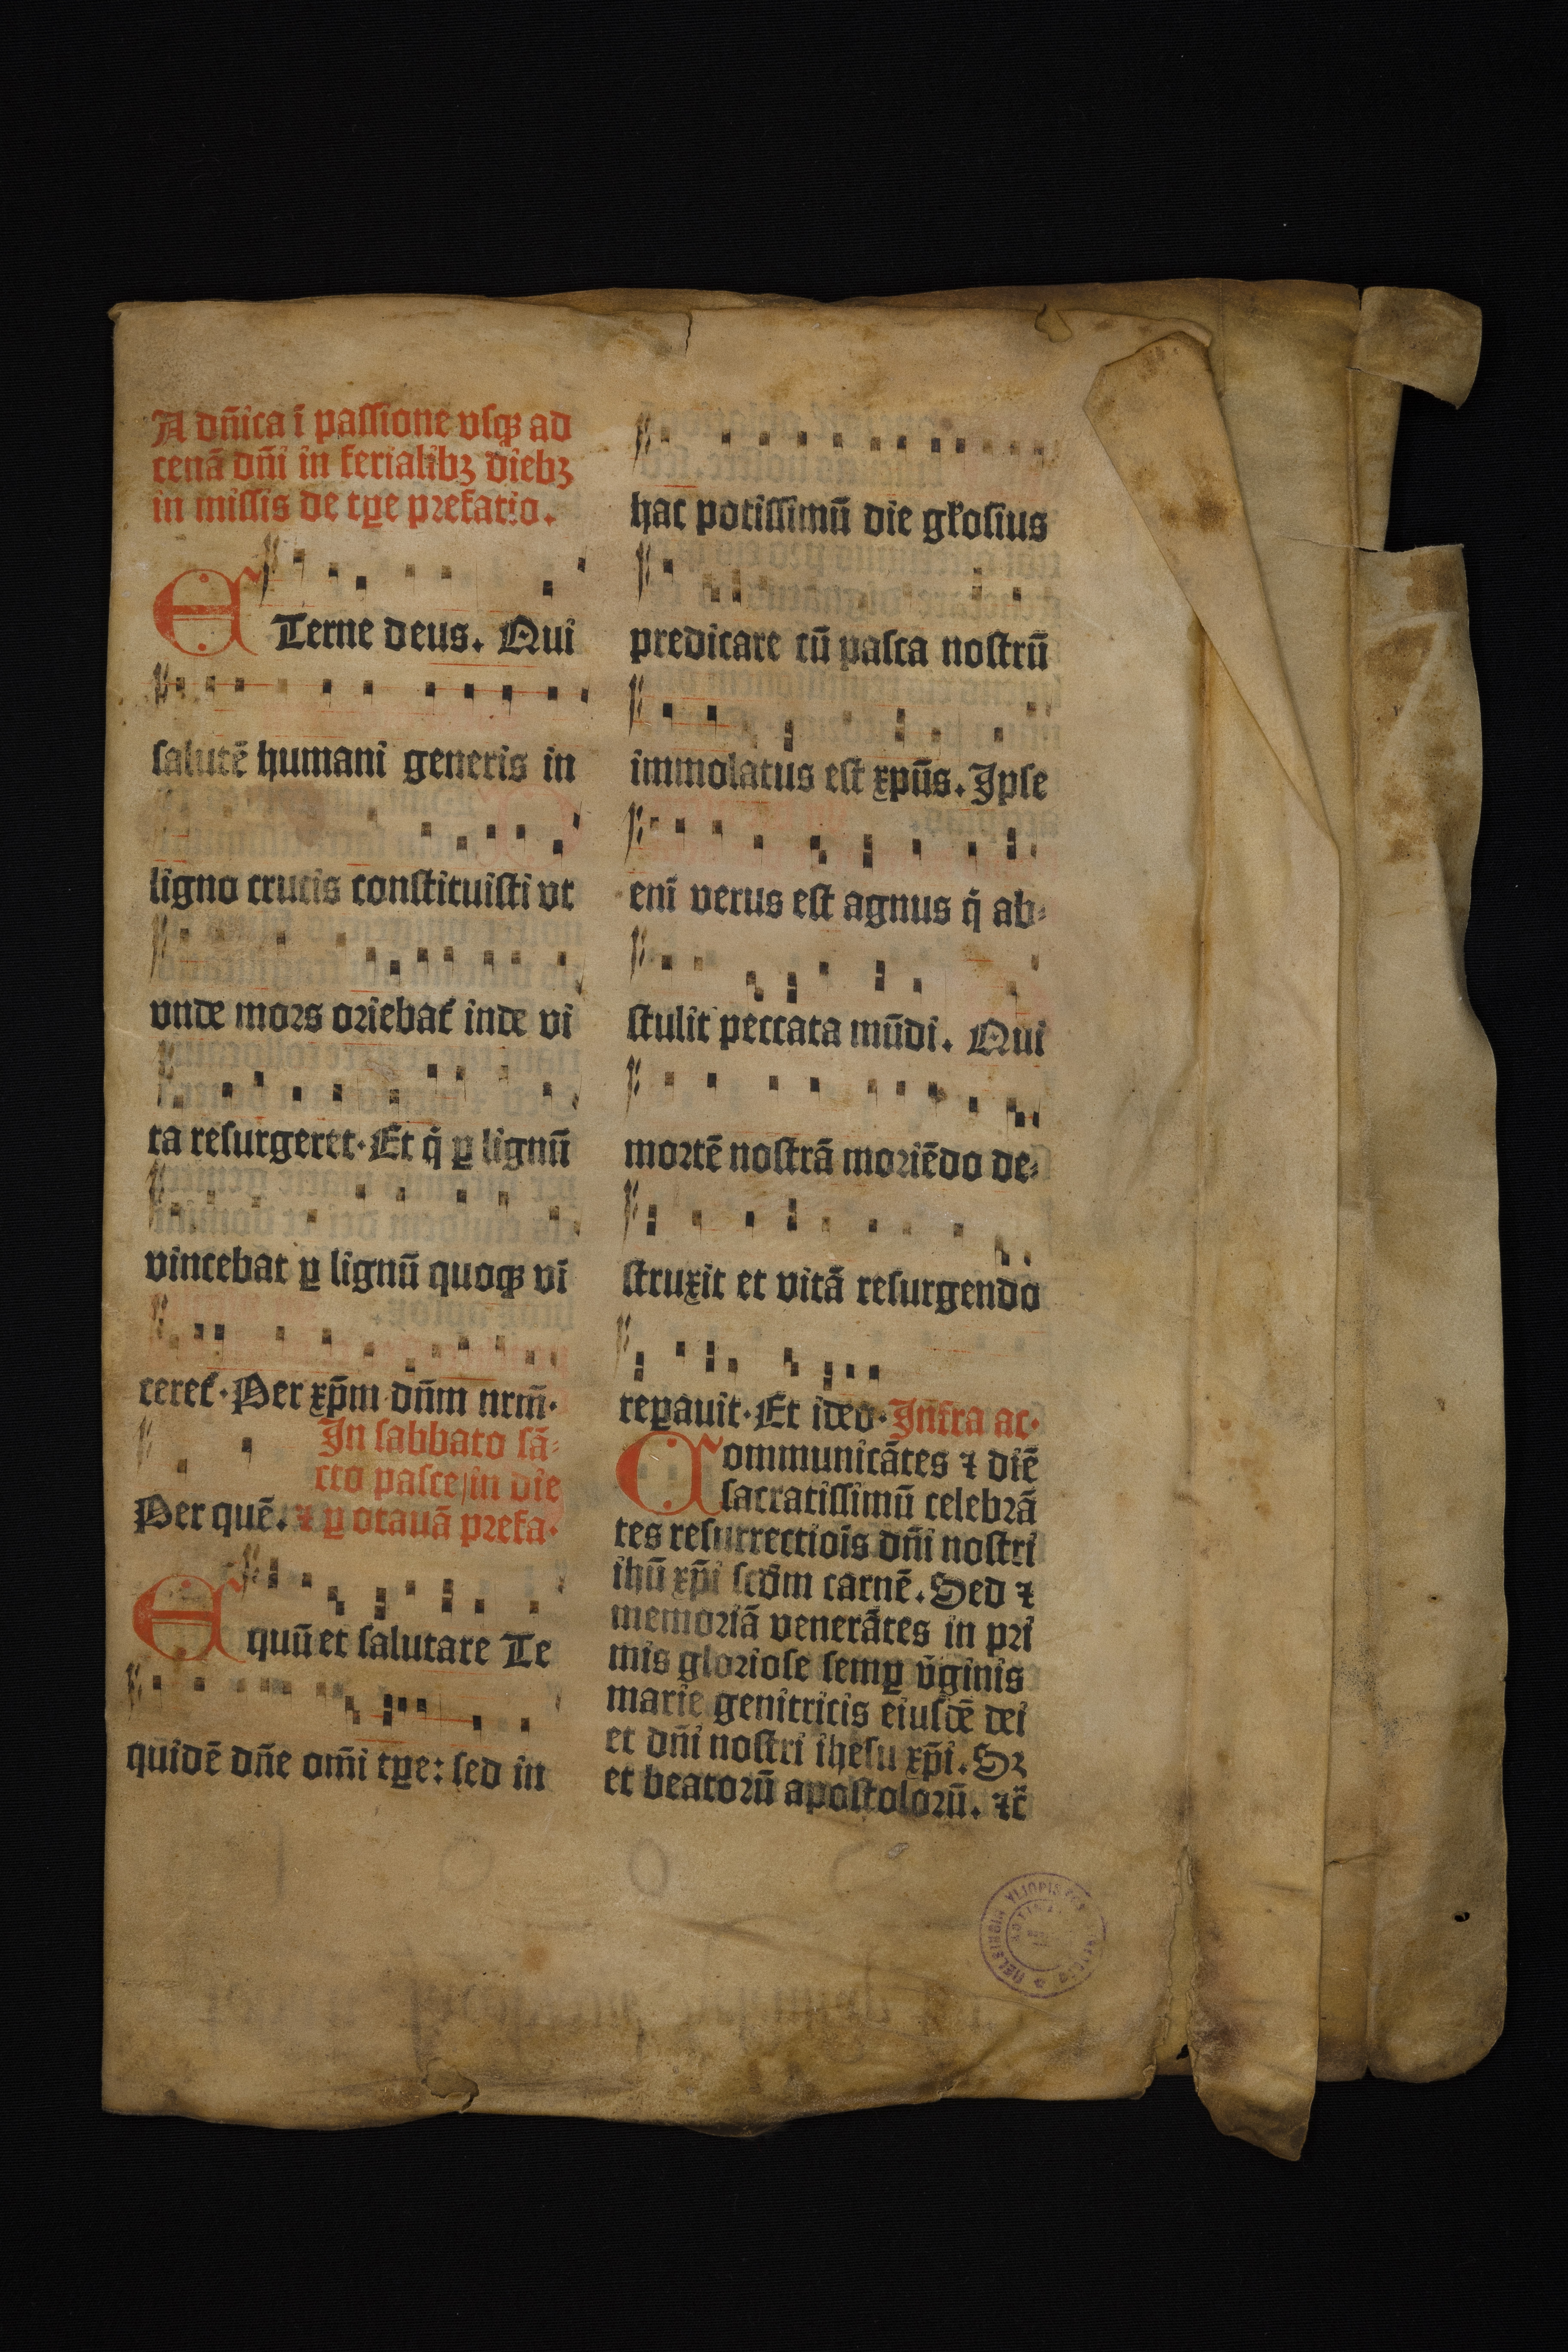 A dn̄ica ī paſſione vſqꝫ ad
cenā dn̄i in ferialibꝫ diebꝫ
in miſſis de tꝑe prefatio.
ETerne deus. Qui
ſalutē humani generis in
ligno crucis conſtituiſti vt
vnde mors oriebat᷑ inde vi
ta reſurgeret. Et q̇ ꝑ lignū
vincebat ꝑ lignū quoqꝫ vī
ceret᷑. Per xp̄m dn̄m nrm̄.
In ſabbato ſā⸗
cto paſce/in die
Per quē. ⁊ ꝑ octauā prefa.
Equū et ſalutare Te
quidē dn̄e om̄i tꝑe: ſed in
hac potiſſimū die gl̓oſius
predicare cū paſca noſtrū
immolatus eſt xpūs. Ipſe
enī verus eſt agnus q̇ ab⸗
ſtulit peccata mūdi. Qui
mortē noſtrā moriēdo de⸗
ſtruxit et vitā reſurgendo
reꝑauit. Et ideo. Infra ac.
Communicātes ⁊ diē
ſacratiſſimū celebrā
tes reſurrectiōis dn̄i noſtri
ihū xp̄i ſcd̄m carnē. Sed ⁊
memoriā venerātes in pri
mis glorioſe ſemꝑ v̄ginis
marie genitricis eiuſdē dei
et dn̄i noſtri iheſu xp̄i. Sꝫ
et beatorū apoſtolorū. ⁊c̄